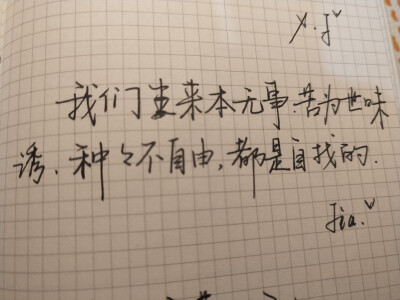 我们生来本无事.苦为世味
诱.种々不自由,都是自找的.
Jia.